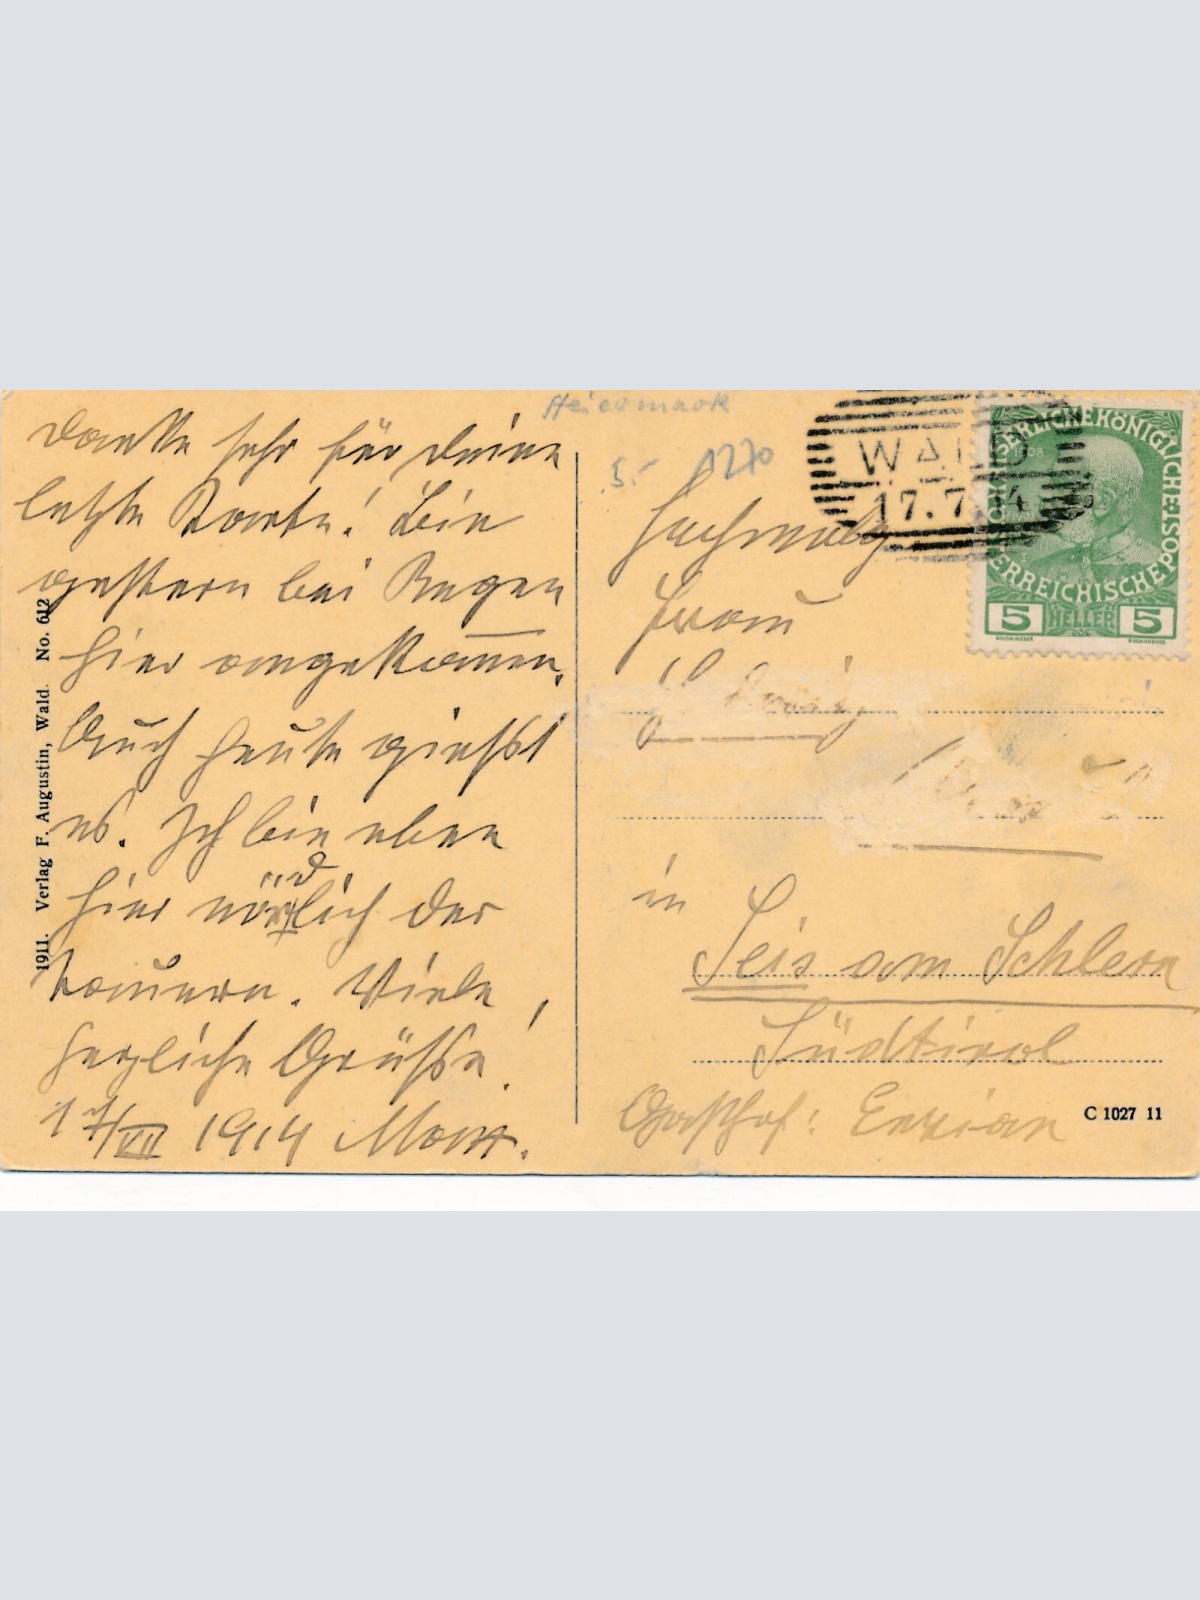 Danke sehr für Deine
letzte Karte! Bin
gestern bei Regen
hier angekommen.
Auch heute giesst
es. Ich bin eben
hier nördlich der
Tauern. Viele
herzliche Grüsse!
17/VII 1914 Max.
1911. Verlag F. Augustin, Wald. No. 612
Steiermark
5.- 1270
WALD
17.7.14
KAISERLICHE KÖNIGLICHE
ÖSTERREICHISCHE POST
1908
5 HELLER 5
Hochwolg
Frau
in
Seis am Schlern
Südtirol
Gasthof: Enzian
C 1027 11